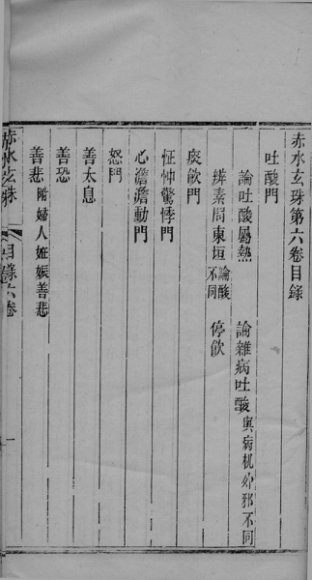 赤水玄珠第六卷目錄
吐酸門
論吐酸屬熱 論雜病吐酸與病机外邪不同
據素問東垣論酸不同 停飲
痰飲門
怔忡驚悸門
心澹澹動門
怒門
善太息
善恐
善悲附婦人妊娠善悲
赤水玄珠 目錄六卷 一